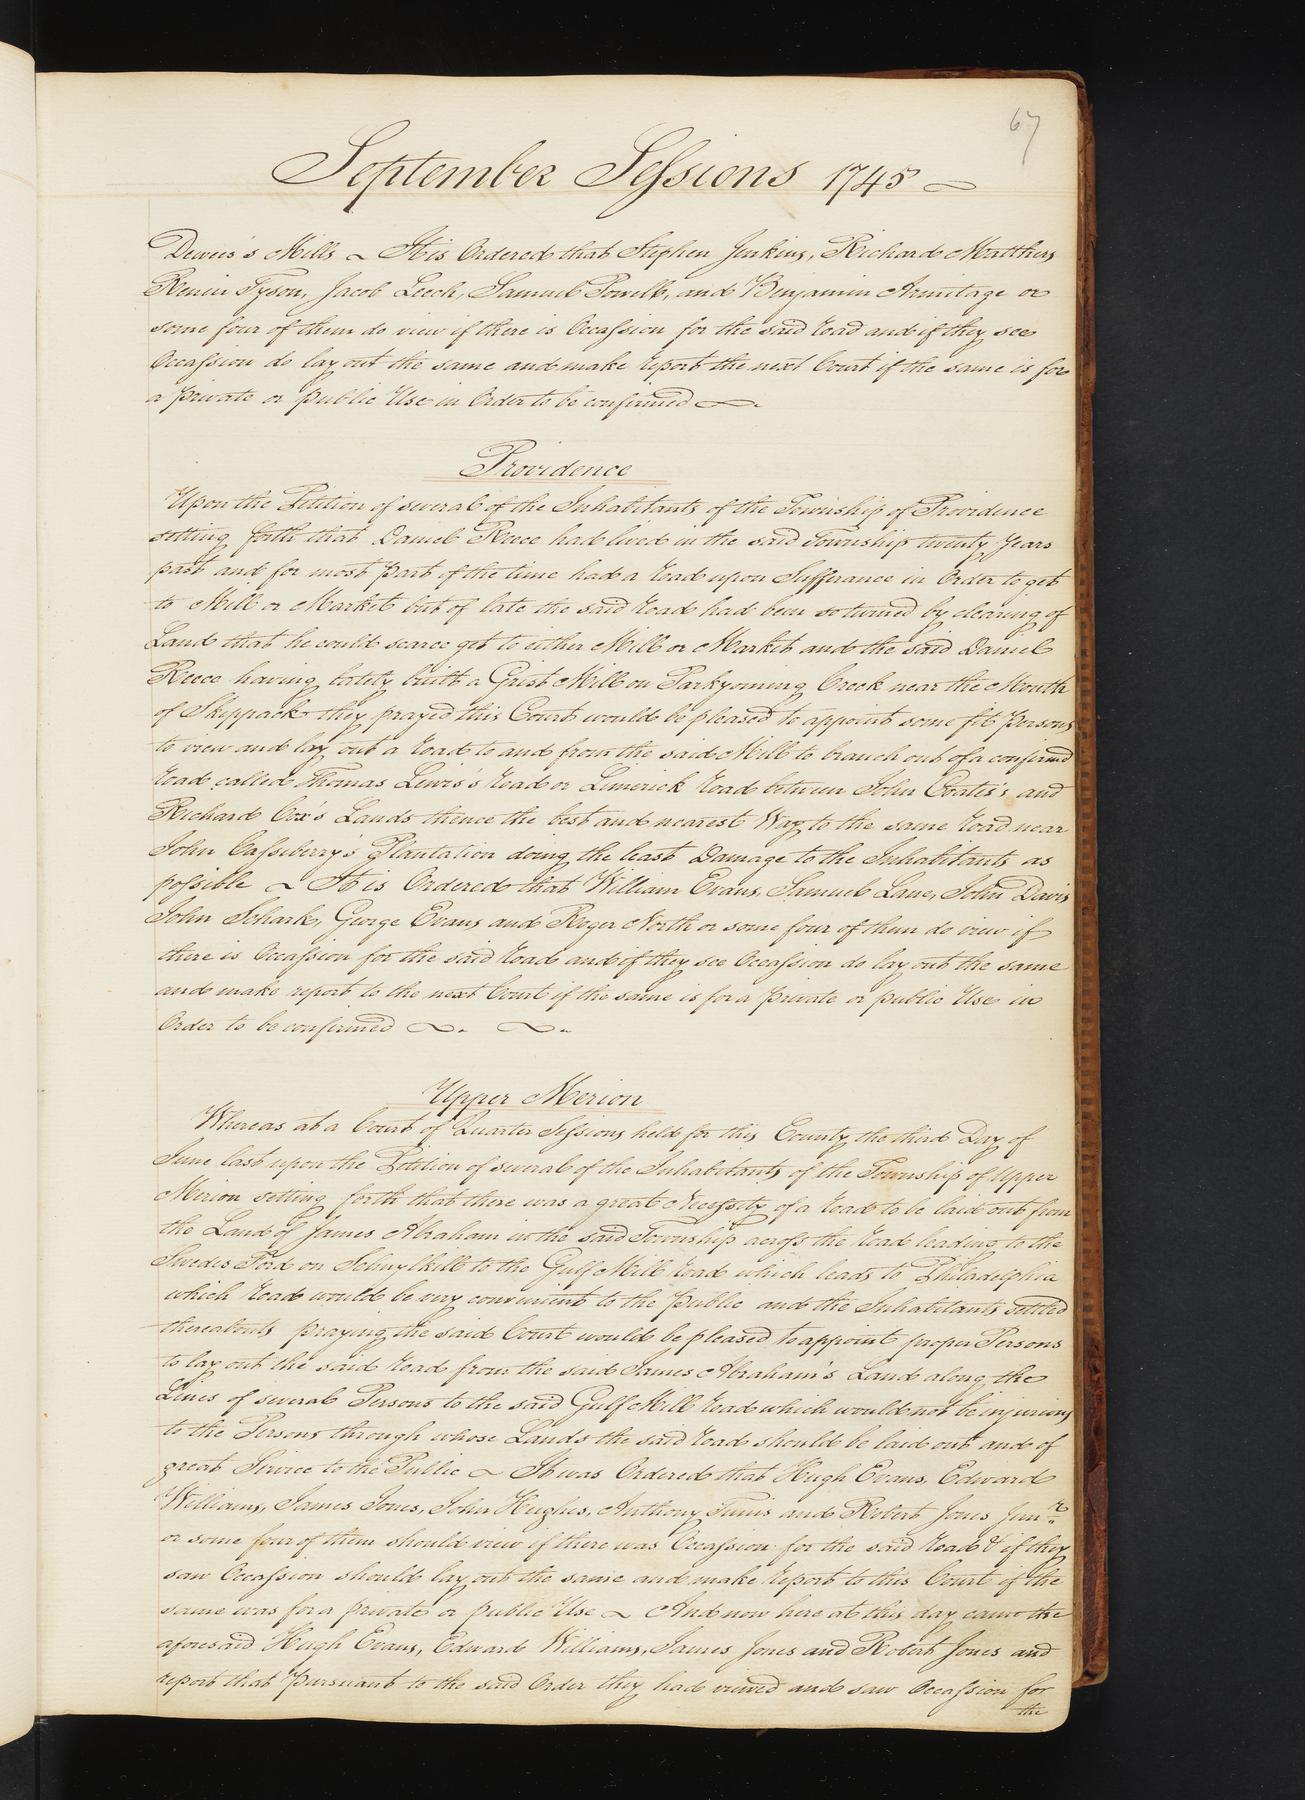 67
September Sessions 1745
Dewees's Mills ~ It is Ordered that Stephen Jenkins, Richard Matthers
Renier Tyson, Jacob Leech, Samuel Powell, and Benjamin Armitage or
some four of them do view if there is Occassion for the said road and if they see
Occassion do lay out the same and make report the next Court if the same is for
a private or public Use in Order to be confirmed
Providence
Upon the Petition of several of the Inhabitants of the Township of Providence
setting forth that Daniel Reece had lived in the said Township twenty Years
past and for most part of the time had a road upon Sufferance in Order to get
to Mill or Market but of late the said road had been so turned by clearing of
Land that he could scarce get to either Mill or Market and the said Daniel
Reece having lately built a Grist Mill on Parkyoming Creek near the Mouth
of Skippack they prayed this Court would be pleased to appoint some fit Persons
to view and lay out a road to and from the said Mill to branch out of a confirmed
road called Thomas Lewis's road or Limerick road between John Coates's and
Richard Cox's Lands thence the best and nearest Way to the same road near
John Cassiberry's Plantation doing the least Damage to the Inhabitants as
possible ~ It is Ordered that William Evans, Samuel Lane, John Davis
John Schark, George Evans and Roger North or some four of them do view if
there is Occassion for the said road and if they see Occassion do lay out the same
and make report to the next Court if the same is for a private or public Use in
Order to be confirmed
Upper Merion
Whereas at a Court of Quarter Sessions held for this County the third Day of
June last upon the Petition of several of the Inhabitants of the Township of Upper
Merion setting forth that there was a great Necessity of a road to be laid out from
the Land of James Abraham in the said Township across the road leading to the
Swedes Ford on Schuylkill to the Gulf Mill road which leads to Philadelphia
which road would be very convenient to the public and the Inhabitants settled
thereabouts praying the said Court would be pleased to appoint proper Persons
to lay out the said road from the said James Abraham's Land along the
Lines of several Persons to the said Gulf Mill road which would not be injurious
to the Persons through whose Lands the said road should be laid out and of
great Service to the Public ~ It was Ordered that Hugh Evans, Edward
Williams, James Jones, John Hughes, Anthony Tunis and Robert Jones Junr
or some four of them should view if there was Occassion for the said road & if they
saw Occassion should lay out the same and make report to this Court if the
same was for a private or public Use ~ And now here at this day came the
aforesaid Hugh Evans, Edward Williams, James Jones and Robert Jones and
report that pursuant to the said Order they had viewed and saw Occassion for
the